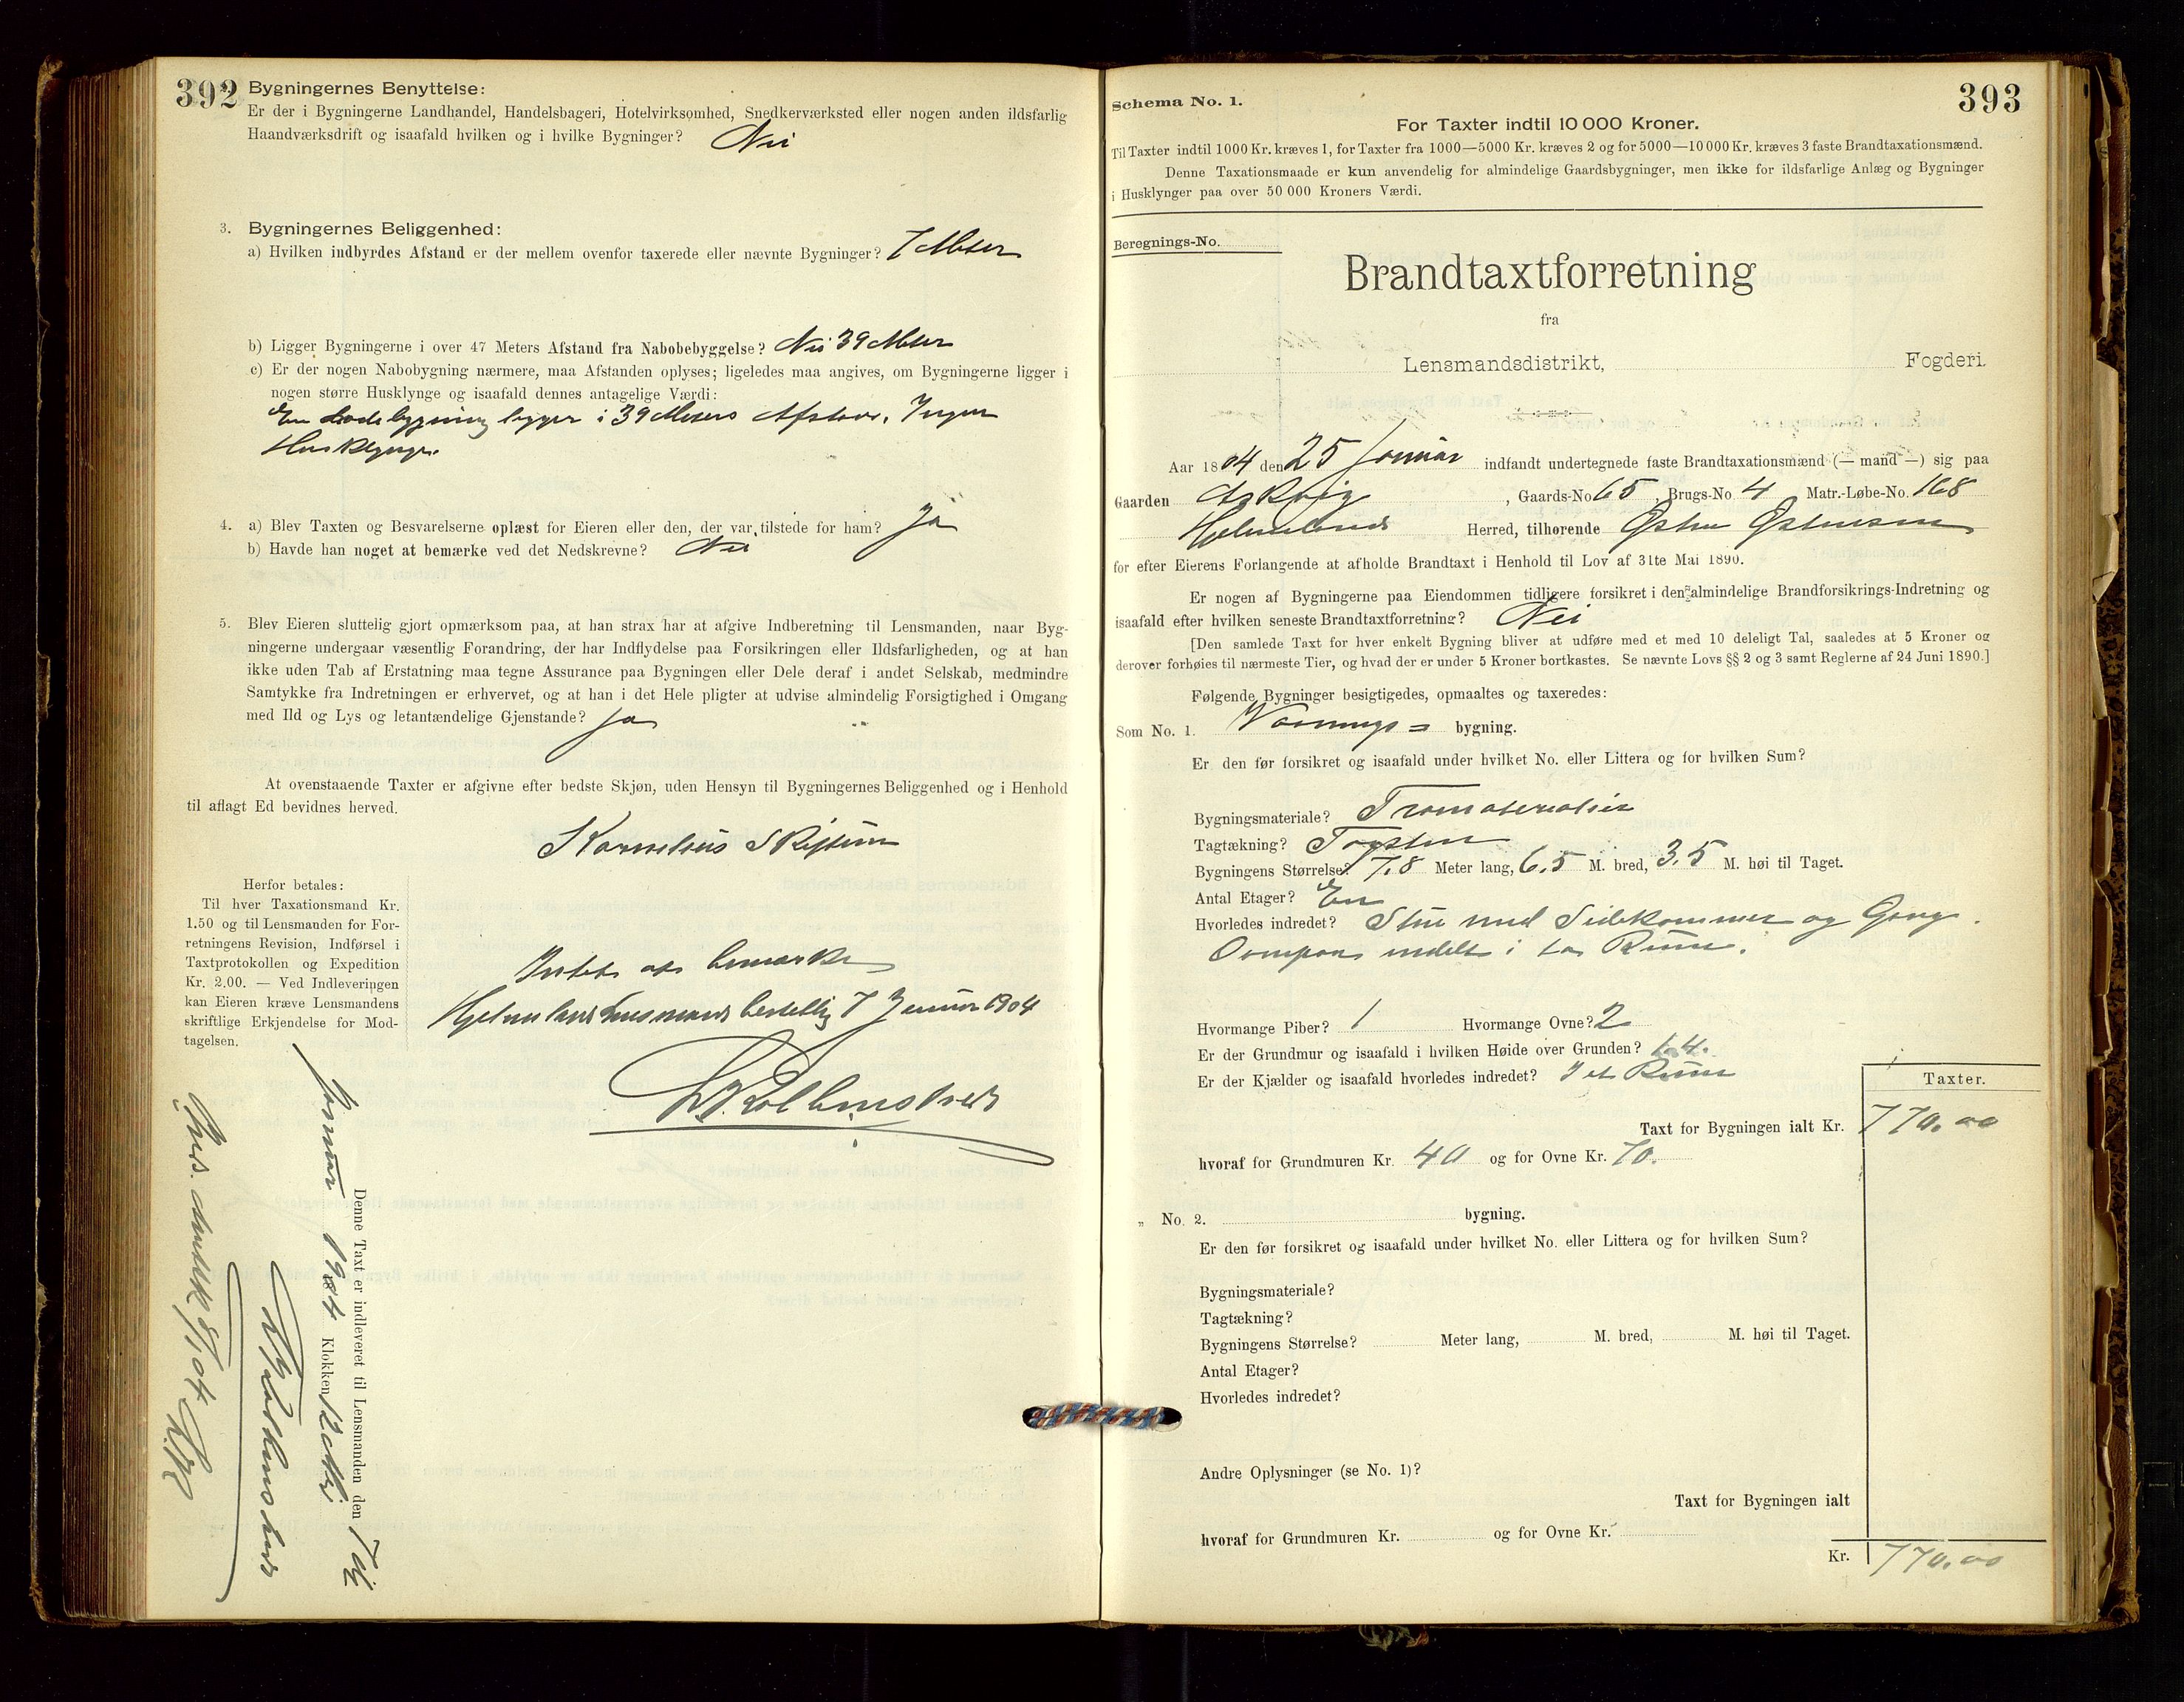 392
Bygningernes Benyttelse:
Er der i Bygningerne Landhandel, Handelsbageri, Hotelvirksomhed, Snedkerværksted eller nogen anden ildsfarlig
Haandværksdrift og isaafald hvilken og i hvilke Bygninger? Nei
3. Bygningernes Beliggenhed:
a) Hvilken indbyrdes Afstand er der mellem ovenfor taxerede eller nævnte Bygninger? 7 Meter
b) Ligger Bygningerne i over 47 Meters Afstand fra Nabobebyggelse? Nei 39 Meter
c) Er der nogen Nabobygning nærmere, maa Afstanden oplyses; ligeledes maa angives, om Bygningerne ligger i
nogen større Husklynge og isaafald dennes antagelige Værdi:
En Ladebygning ligger i 39 Meters Afstand. Ingen
Husklynge.
4. a) Blev Taxten og Besvarelserne oplæst for Eieren eller den, der var tilstede for ham? Ja
b) Havde han noget at bemærke ved det Nedskrevne? Nei
5. Blev Eieren sluttelig gjort opmærksom paa, at han strax har at afgive Indberetning til Lensmanden, naar Byg-
ningerne undergaar væsentlig Forandring, der har Indflydelse paa Forsikringen eller Ildsfarligheden, og at han
ikke uden Tab af Erstatning maa tegne Assurance paa Bygningen eller Dele deraf i andet Selskab, medmindre
Samtykke fra Indretningen er erhvervet, og at han i det Hele pligter at udvise almindelig Forsigtighed i Omgang
med Ild og Lys og letantændelige Gjenstande? Ja
At ovenstaaende Taxter er afgivne efter bedste Skjøn, uden Hensyn til Bygningernes Beliggenhed og i Henhold
til aflagt Ed bevidnes herved.
Kornelius Skiftun
Herfor betales:
Til hver Taxationsmand Kr.
1.50 og til Lensmanden for For-
retningens Revision, Indførsel i
Taxtprotokollen og Expedition
Kr. 2.00. — Ved Indleveringen
kan Eieren kræve Lensmandens
skriftlige Erkjendelse for Mod-
tagelsen.
Intet at bemærke
Hjelmeland Lensmandsbestilling 7 Januar 1904
Denne Taxt er indleveret til Lensmanden den 7de
Januar 1904 Klokken 12
8/1 04
393
Schema No. 1.
For Taxter indtil 10 000 Kroner.
Til Taxter indtil 1000 Kr. kræves 1, for Taxter fra 1000—5000 Kr. kræves 2 og for 5000—10 000 Kr. kræves 3 faste Brandtaxationsmænd.
Denne Taxationsmaade er kun anvendelig for almindelige Gaardsbygninger, men ikke for ildsfarlige Anlæg og Bygninger
i Husklynger paa over 50 000 Kroners Værdi.
Beregnings-No.
Brandtaxtforretning
fra
Lensmandsdistrikt, Fogderi.
Aar 1804 den 25 Januar indfandt undertegnede faste Brandtaxationsmænd (— mand —) sig paa
Gaarden Askvig, Gaards-No. 65, Brugs-No. 4 Matr.-Løbe-No. 168
Hjelmelands Herred, tilhørende Østen Østensen
for efter Eierens Forlangende at afholde Brandtaxt i Henhold til Lov af 31te Mai 1890.
Er nogen af Bygningerne paa Eiendommen tidligere forsikret i den almindelige Brandforsikrings-Indretning og
isaafald efter hvilken seneste Brandtaxtforretning? Nei
[Den samlede Taxt for hver enkelt Bygning bliver at udføre med et med 10 deleligt Tal, saaledes at 5 Kroner og
derover forhøies til nærmeste Tier, og hvad der er under 5 Kroner bortkastes. Se nævnte Lovs §§ 2 og 3 samt Reglerne af 24 Juni 1890.]
Følgende Bygninger besigtigedes, opmaaltes og taxeredes:
Som No. 1. Vaanings= bygning.
Er den før forsikret og isaafald under hvilket No. eller Littera og for hvilken Sum?
Bygningsmateriale? Træmaterialier
Tagtækning? Tagsten
Bygningens Størrelse? 7,8 Meter lang, 6,5 M. bred, 3,5 M. høi til Taget.
Antal Etager? En
Hvorledes indredet? Stue med Sidekammer og Gang.
Ovenpaa indelt i to Rum.
Hvormange Piber? 1 Hvormange Ovne? 2
Er der Grundmur og isaafald i hvilken Høide over Grunden? 1.4.
Er der Kjælder og isaafald hvorledes indredet? I et Rum
Taxter.
Taxt for Bygningen ialt Kr. 770.00
hvoraf for Grundmuren Kr. 40 og for Ovne Kr. 70.
„ No. 2. bygning.
Er den før forsikret og isaafald under hvilket No. eller Littera og for hvilken Sum?
Bygningsmateriale?
Tagtækning?
Bygningens Størrelse? Meter lang, M. bred, M. høi til Taget.
Antal Etager?
Hvorledes indredet?
Andre Oplysninger (se No. 1)?
Taxt for Bygningen ialt
hvoraf for Grundmuren Kr. og for Ovne Kr.
Kr. 770.00